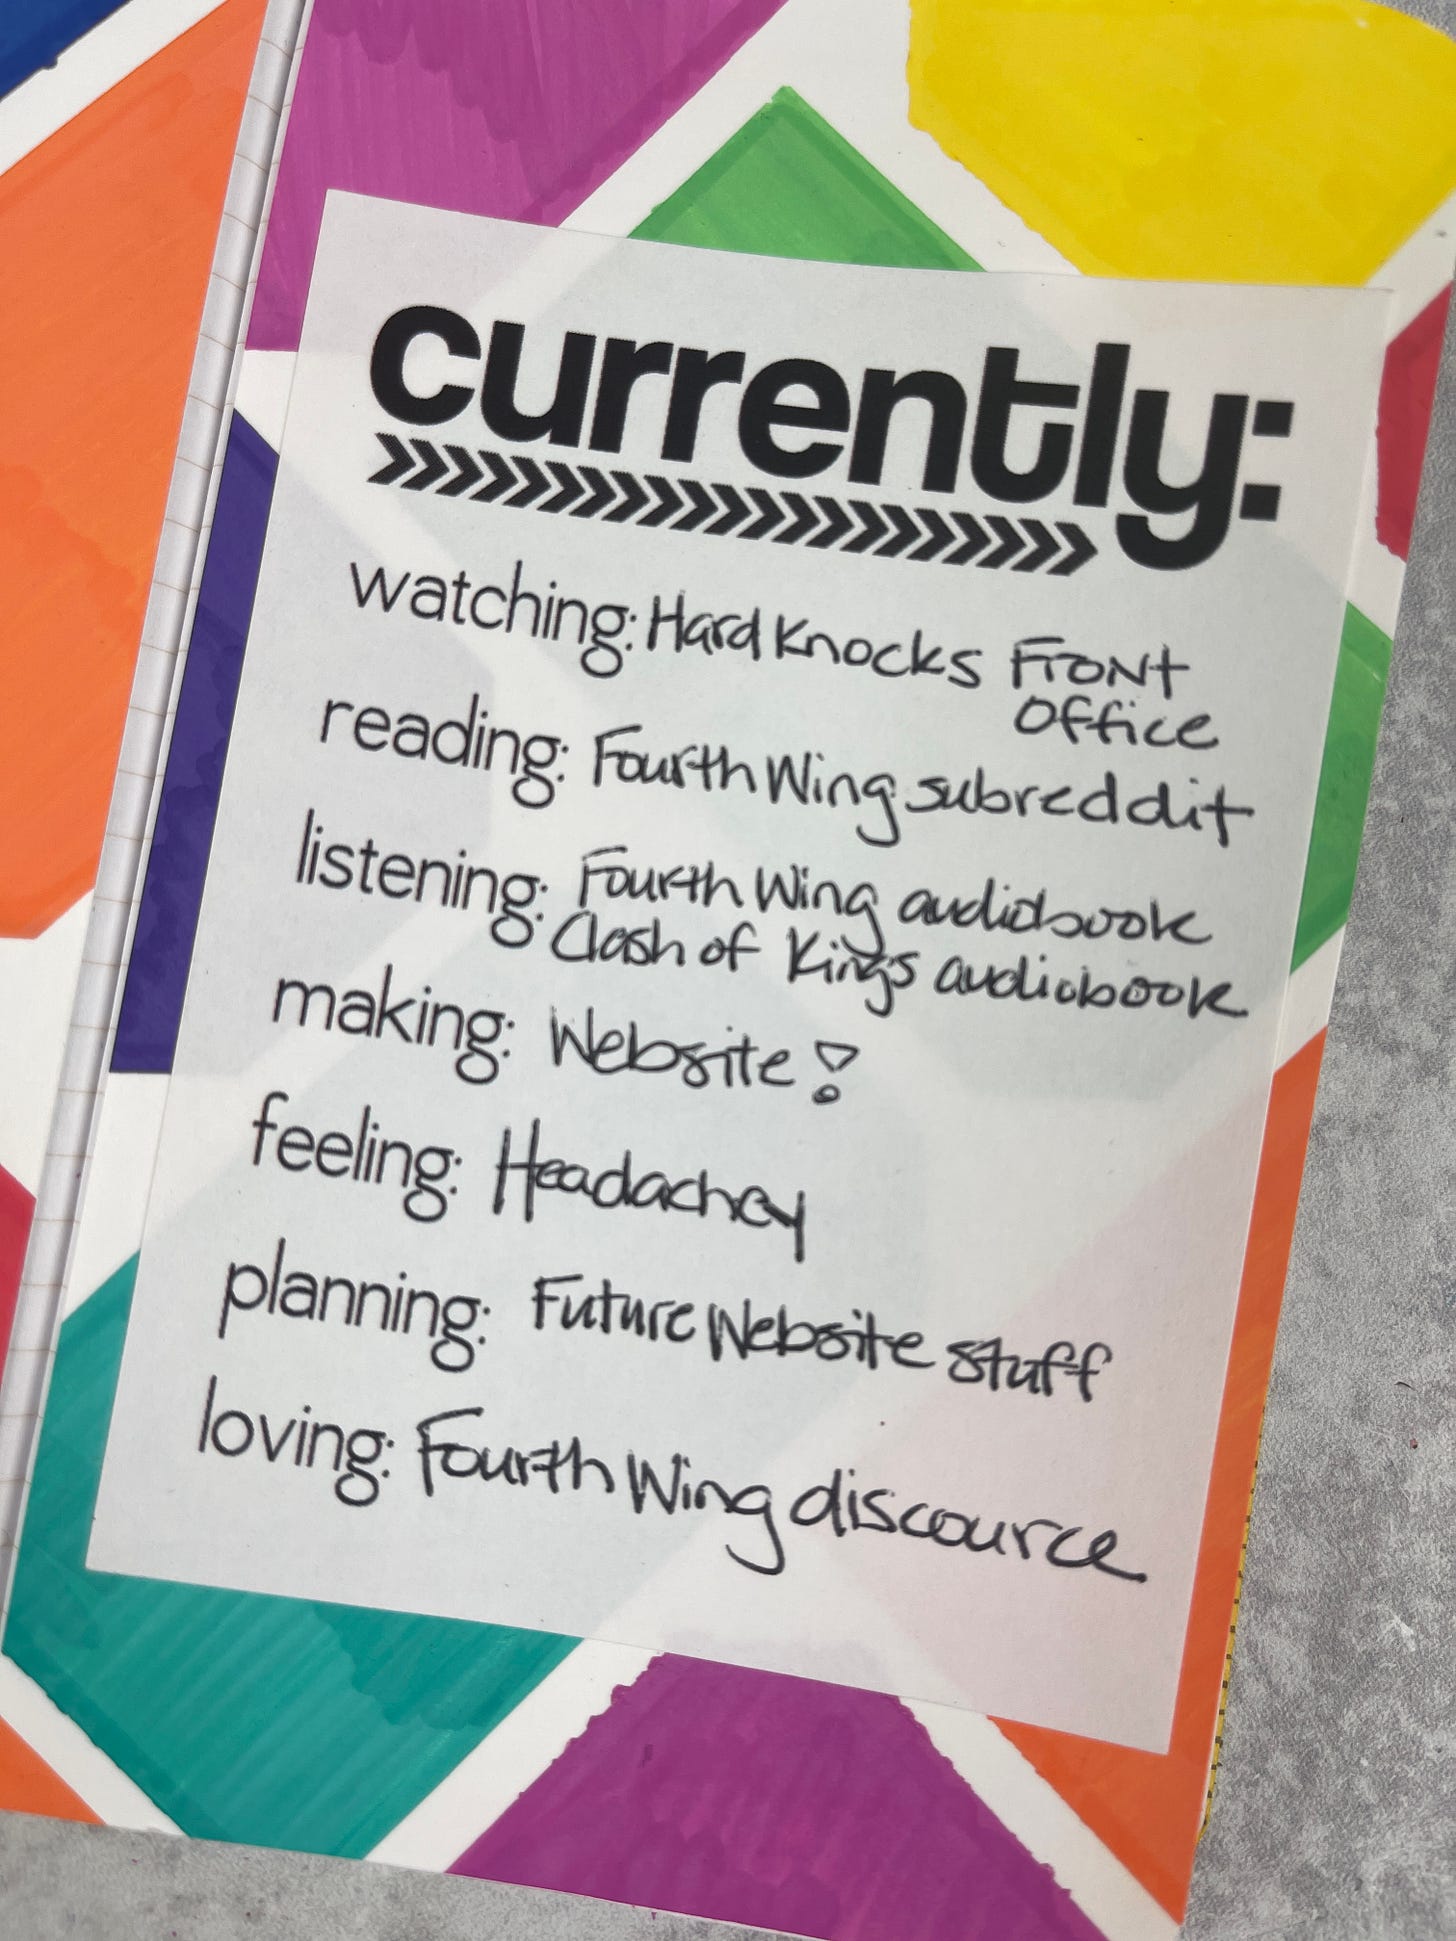 currently:
>>>>>>>>>>>>>>>>>>>>>
watching: Hard Knocks Front
Office
reading: Fourth Wing subreddit
listening: Fourth Wing audiobook
Clash of Kings audiobook
making: Website!
feeling: Headachey
planning: Future Website stuff
loving: Fourth Wing discource